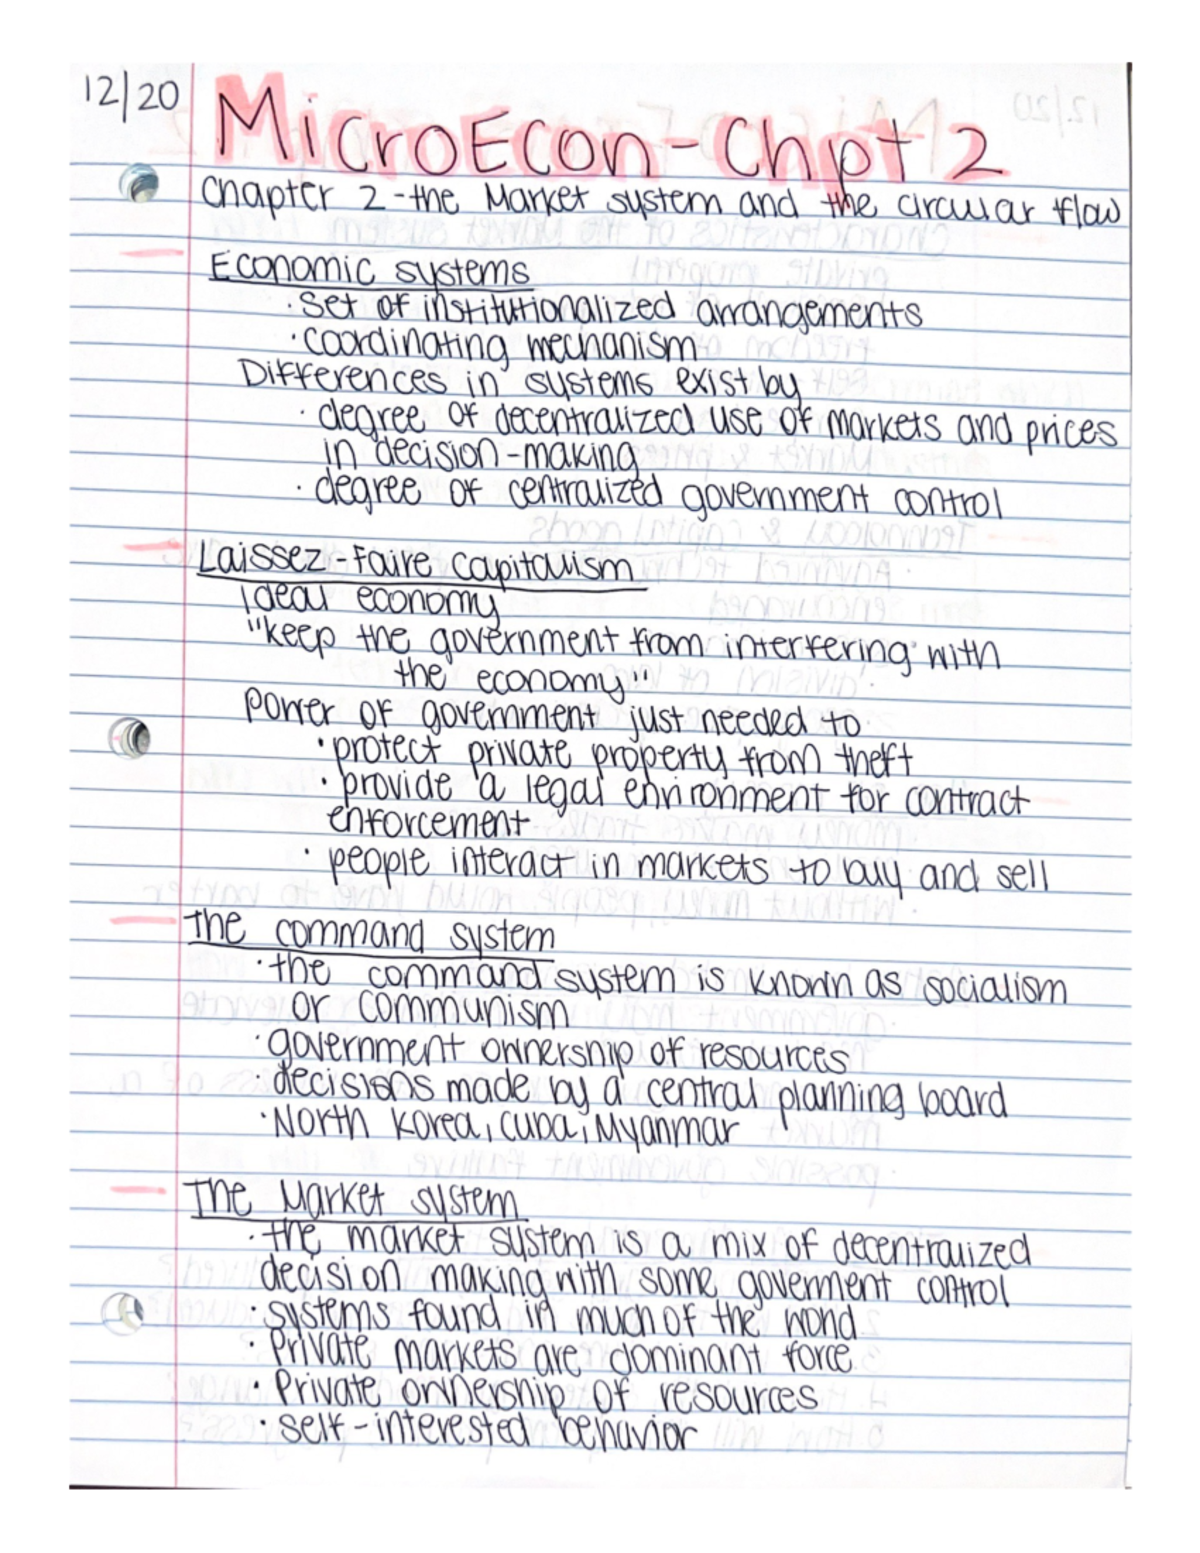 12/20
MicroEcon-Chpt 2
Chapter 2 - the Market system and the circular flow
Economic systems
· set of institutionalized arrangements
· coordinating mechanism
Differences in systems exist by
· degree of decentralized use of markets and prices
in decision-making
· degree of centralized government control
Laissez-Faire capitalism
Ideal economy
"keep the government from interfering with
the economy"
power of government just needed to
· protect private property from theft
· provide a legal environment for contract
enforcement
· people interact in markets to buy and sell
The command system
· the command system is known as socialism
or communism
· government ownership of resources
· decisions made by a central planning board
· North Korea, Cuba, Myanmar
The Market system
· the market system is a mix of decentralized
decision making with some goverment control
· systems found in much of the world
· Private markets are dominant force
· Private ownership of resources
· self-interested behavior